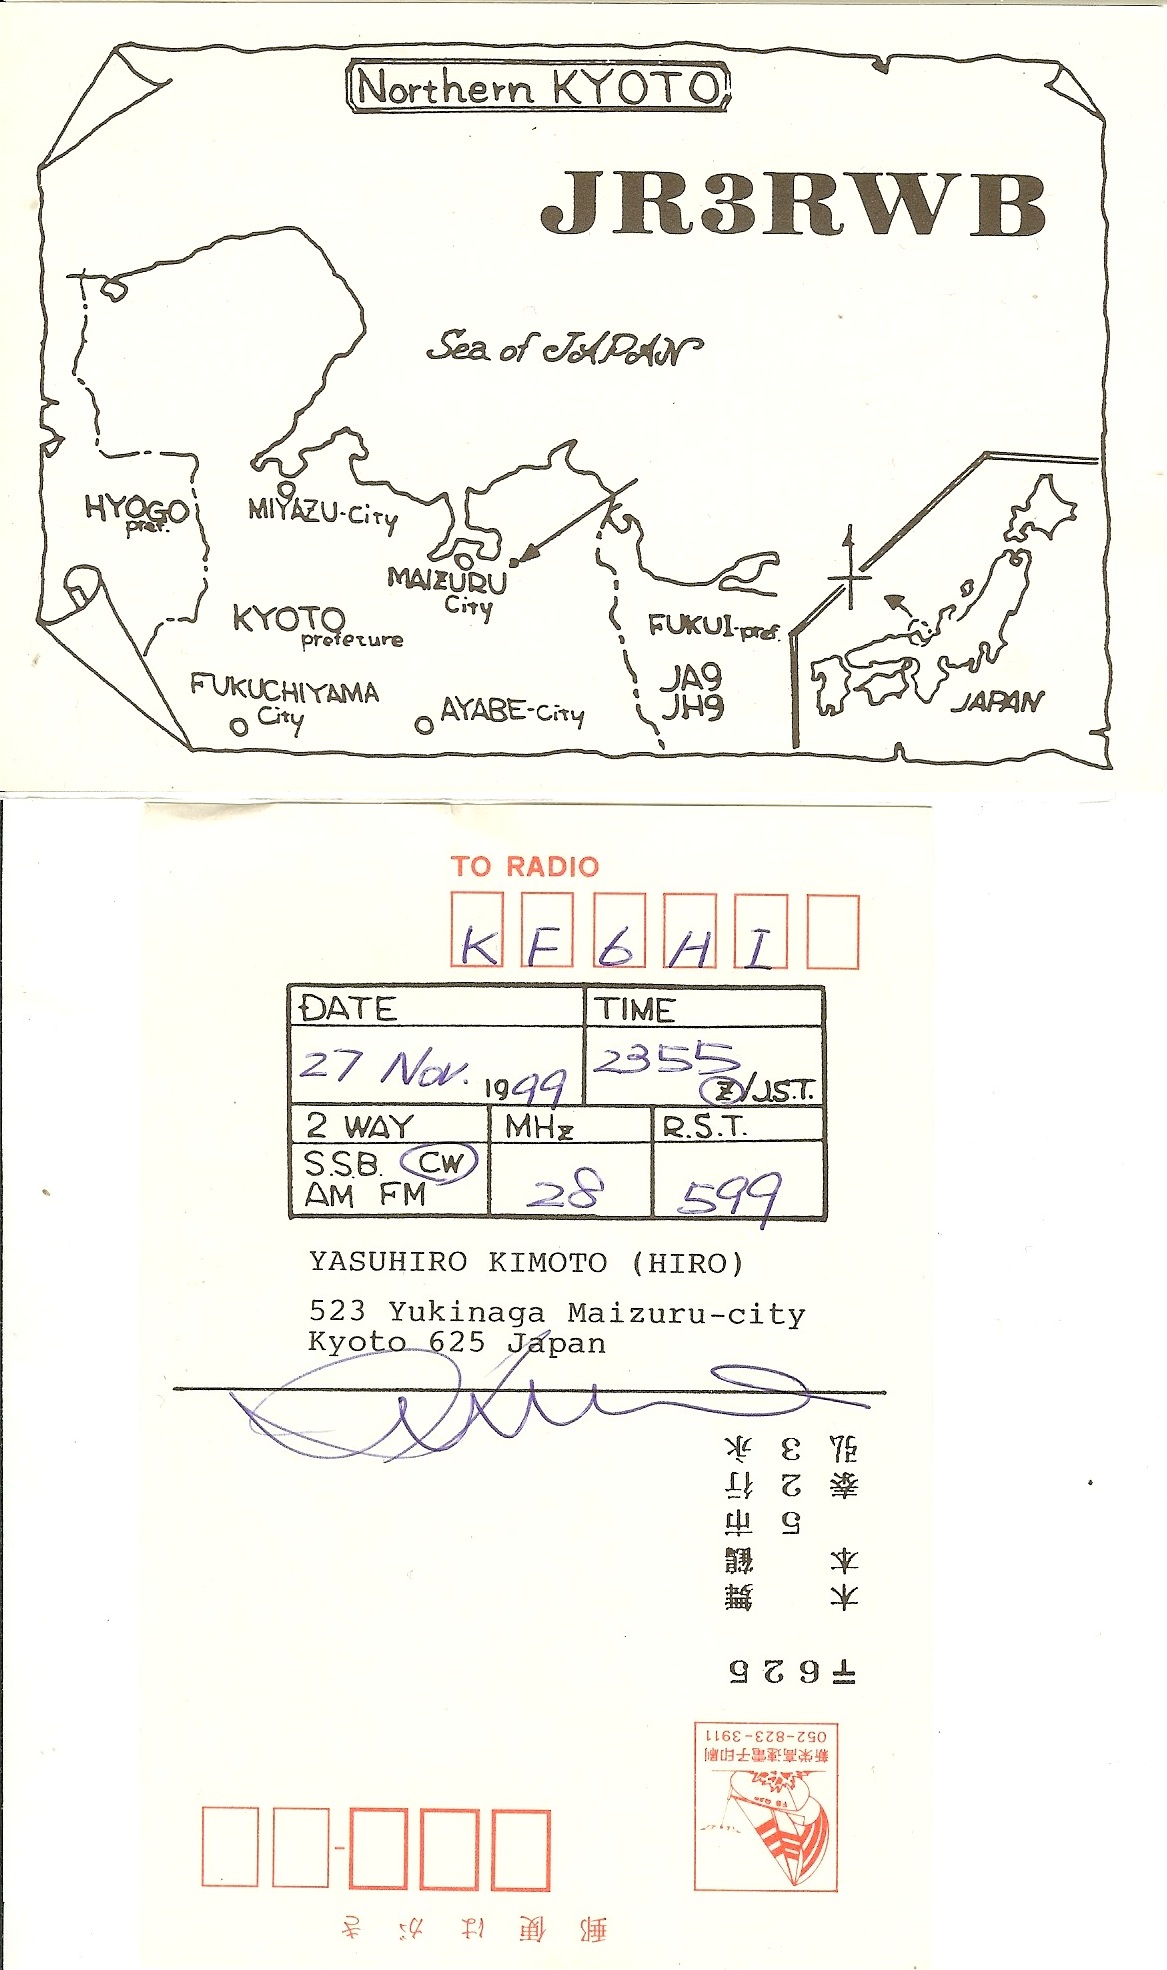 Northern KYOTO
JR3RWB
Sea of JAPAN
HYOGO
pref.
MIYAZU-City
MAIZURU
City
KYOTO
prefeture
FUKUI-pref.
JA9
JH9
FUKUCHIYAMA
City
AYABE-City
JAPAN
TO RADIO
K F 6 H I
DATE TIME
27 Nov. 1999 2355 Z/J.S.T.
2 WAY MHz R.S.T.
S.S.B. CW 28 599
AM FM
YASUHIRO KIMOTO (HIRO)
523 Yukinaga Maizuru-city
Kyoto 625 Japan
郵便はがき
新栄高速電子印刷
052-823-3911
〒625
舞鶴市行永
523
木本泰弘